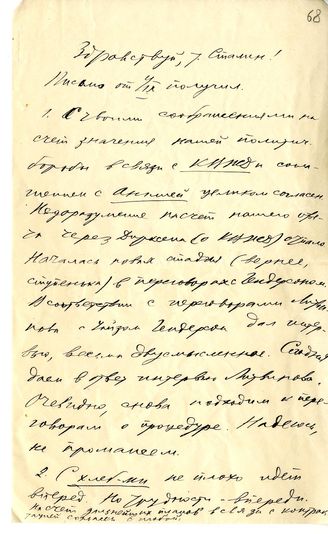 68
Здравствуй, т. Сталин!
Письмо от 1/IX получил.
1. С твоими соображениями на
счет значения нашей политич.
борьбы в связи с КВЖД и сноше-
нием с Англией целиком согласен.
Недоразумение насчет нашего отве-
та через Дирксена (о КВЖД) отпало.
Началась новая стадия (вернее,
ступенька) в переговорах с Гендерсоном.
В соответствии с переговорами Литви-
нова с Уайзом Гендерсон дал интер-
вью, весьма двусмысленное. Сегодня
даем в ответ интервью Литвинова.
Очевидно, снова подходим к пере-
говорам о процедуре. Надеюсь,
не промажем.
2. С хлебом не плохо идет
вперед. Но трудности – впереди.
На счет дальнейших планов в связи с